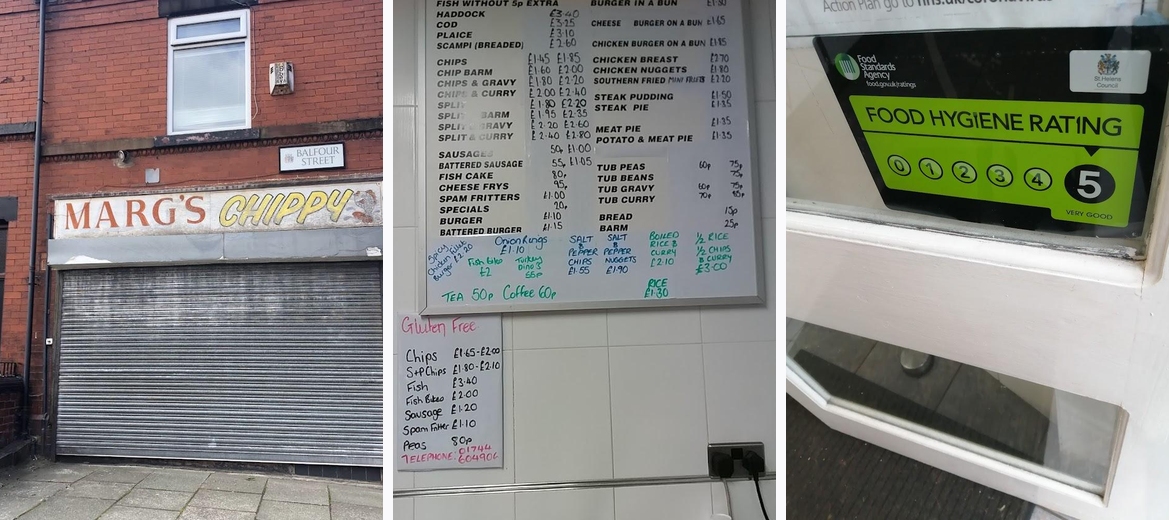 BALFOUR
STREET
MARG'S CHIPPY
FISH WITHOUT 5p EXTRA
HADDOCK £3·40
COD £3·25
PLAICE £3·10
SCAMPI (BREADED) £2·60
CHIPS £1·45 £1·85
CHIP BARM £1·60 £2·00
CHIPS & GRAVY £1·80 £2·20
CHIPS & CURRY £2·00 £2·40
SPLIT £1·80 £2·20
SPLIT BARM £1·95 £2·35
SPLIT GRAVY £2·20 £2·60
SPLIT & CURRY £2·40 £2·80
SAUSAGES 50p £1·00
BATTERED SAUSAGE 55p £1·05
FISH CAKE 80p
CHEESE FRYS 95p
SPAM FRITTERS £1·00
SPECIALS 20p
BURGER £1·10
BATTERED BURGER £1·15
BURGER IN A BUN £1·50
CHEESE BURGER ON A BUN £1·65
CHICKEN BURGER ON A BUN £1·85
CHICKEN BREAST £2·70
CHICKEN NUGGETS £1·80
SOUTHERN FRIED MINI FILLETS £2·20
STEAK PUDDING £1·50
STEAK PIE £1·35
MEAT PIE £1·35
POTATO & MEAT PIE £1·35
TUB PEAS 60p 75p
TUB BEANS 75p
TUB GRAVY 60p 75p
TUB CURRY 70p 90p
BREAD 15p
BARM 25p
Spicy
Chicken Fillet
Burger £2·20
Onion Rings
£1·10
Fish Bites
£2
Turkey
Dino's
55p
SALT
&
PEPPER
CHIPS
£1·55
SALT
&
PEPPER
NUGGETS
£1·90
BOILED
RICE &
CURRY
£2·10
RICE
£1·30
½ RICE
½ CHIPS
& CURRY
£3·00
TEA 50p Coffee 60p
Gluten Free
Chips £1·65-£2·00
S+P Chips £1·80-£2·10
Fish £3·40
Fish Bites £2·00
Sausage £1·20
Spam Fritter £1·10
Peas 80p
TELEPHONE: 01744
604906
Action Plan go to
Food
Standards
Agency
food.gov.uk/ratings
St.Helens
Council
FOOD HYGIENE RATING
0 1 2 3 4 5
VERY GOOD